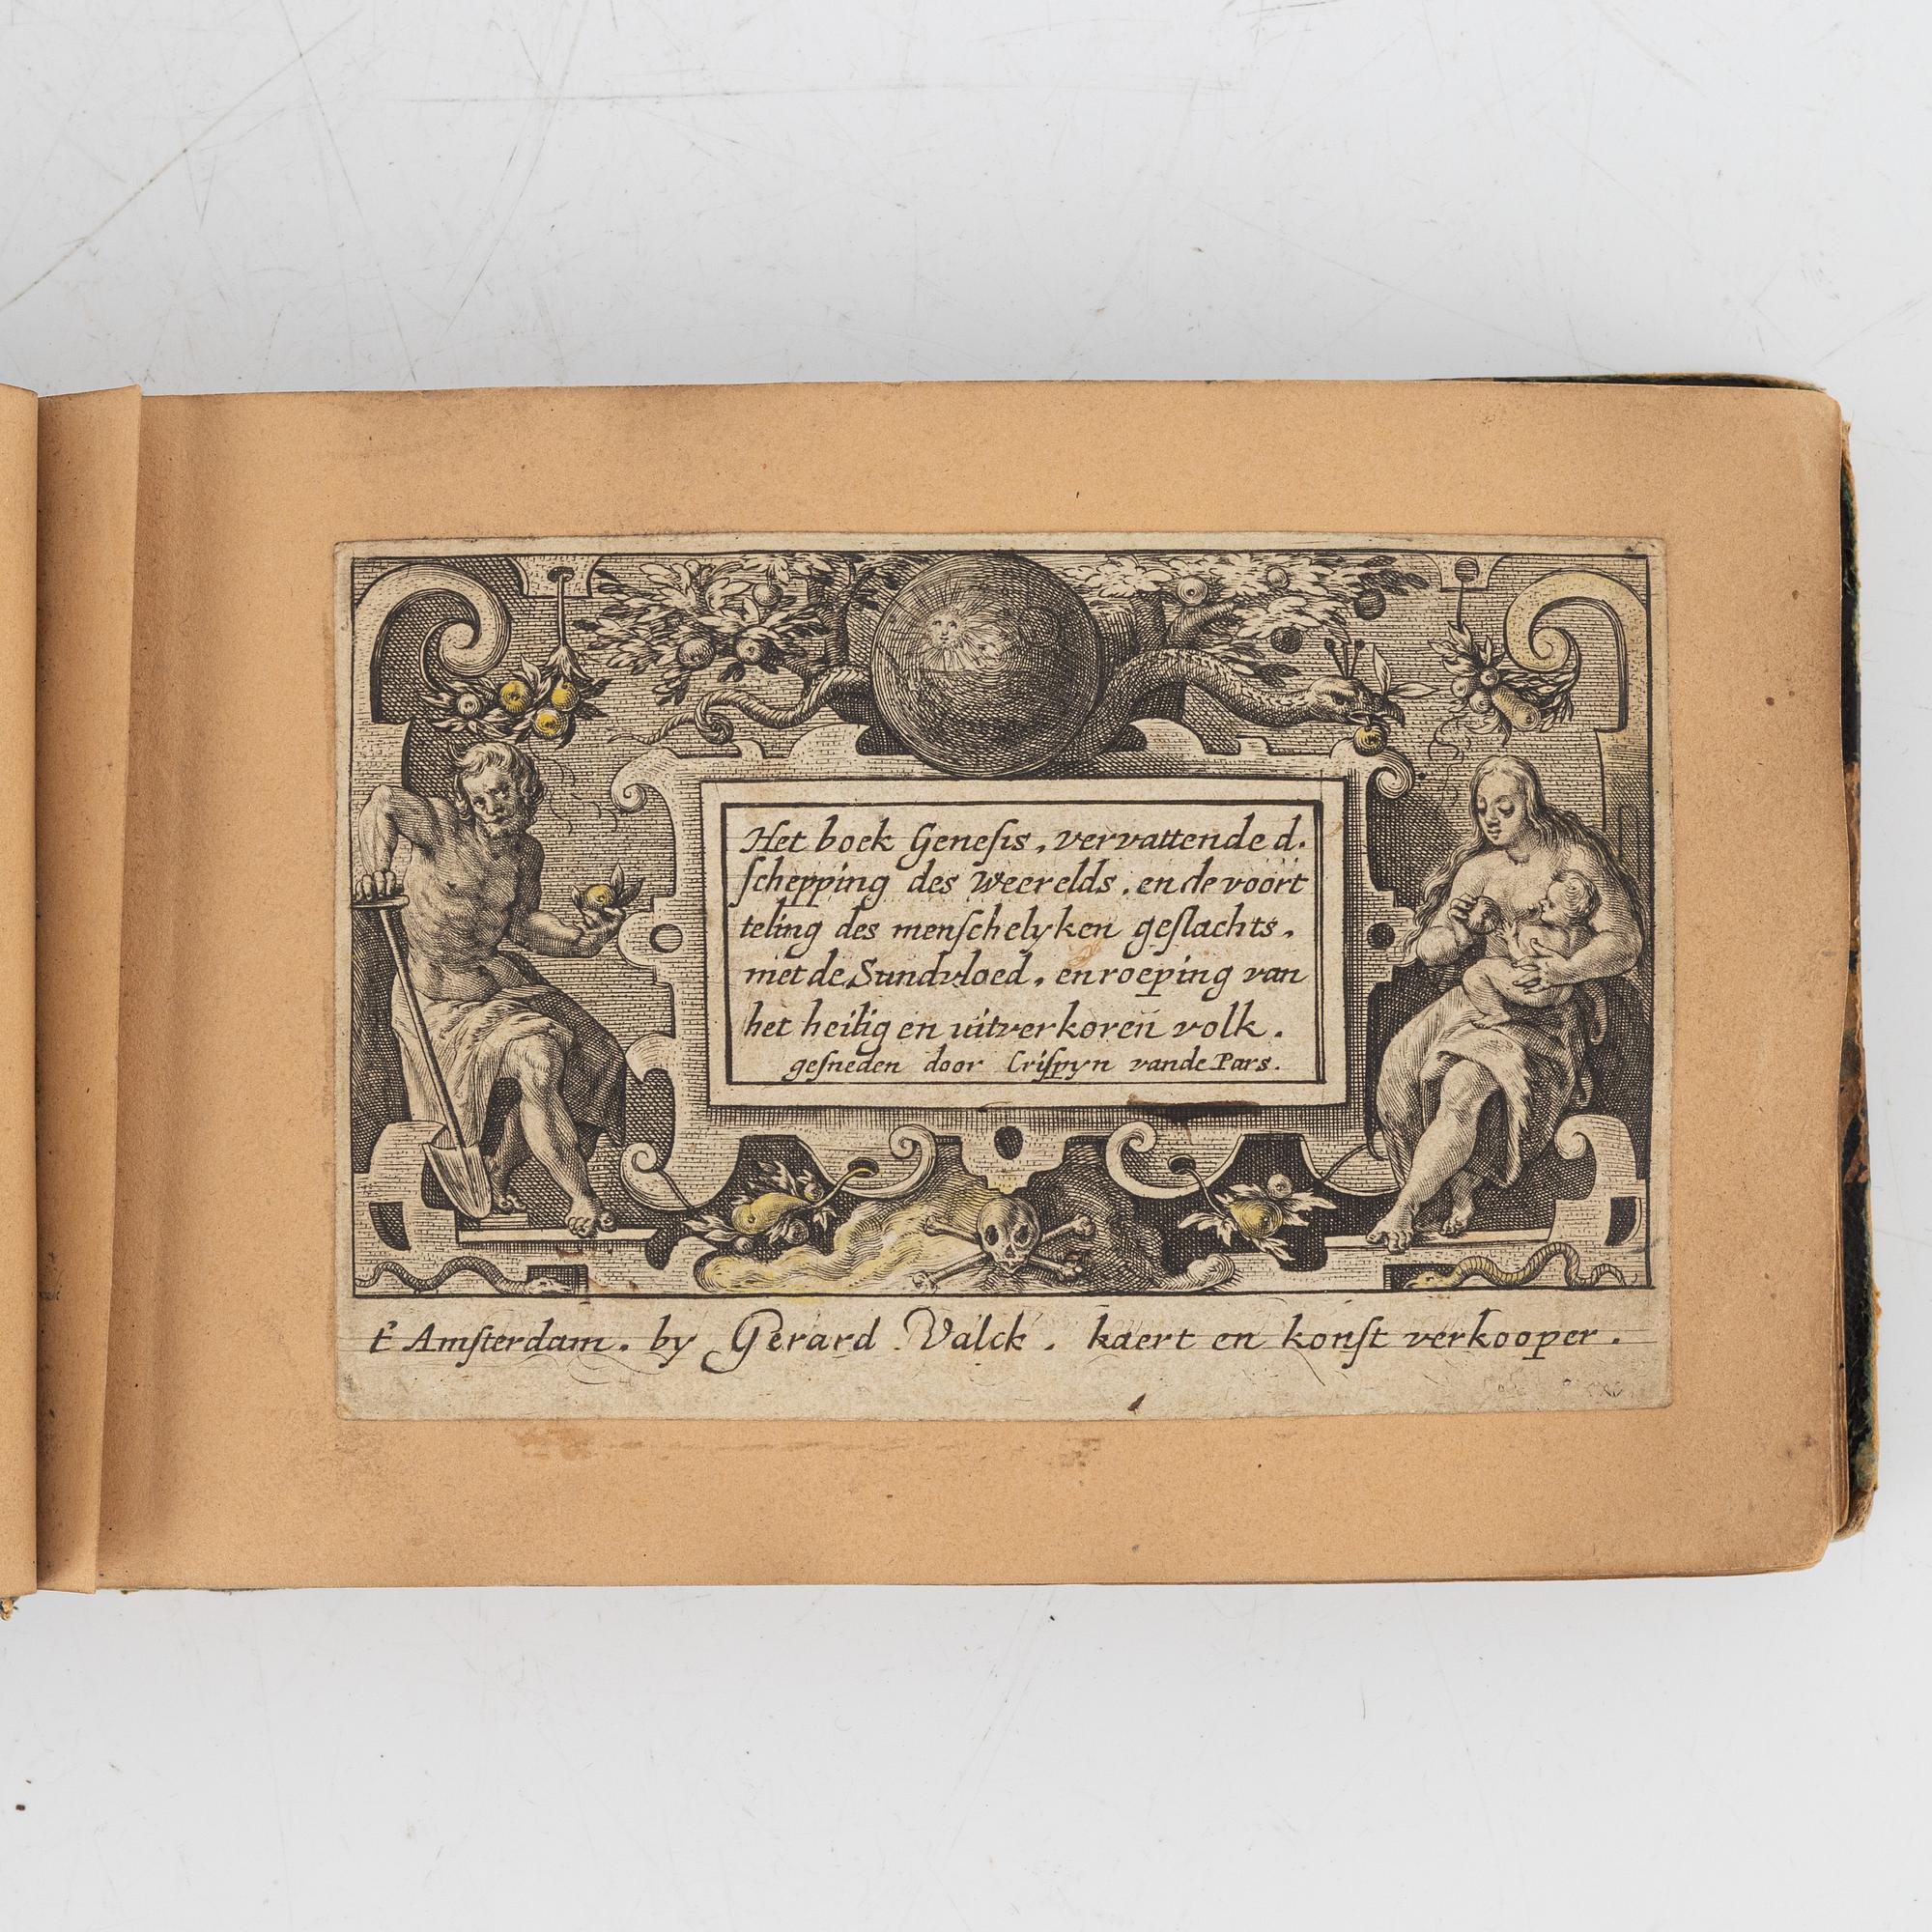 Het boek Geneſis, vervattende d.
ſchepping des Weerelds, en de voort
teling des menſchelyken geſlachts,
met de Sundvloed, en roeping van
het heilig en uitverkoren volk.
geſneden door Criſpyn vande Pars.
t' Amſterdam. by Gerard Valck. kaert en konſt verkooper.